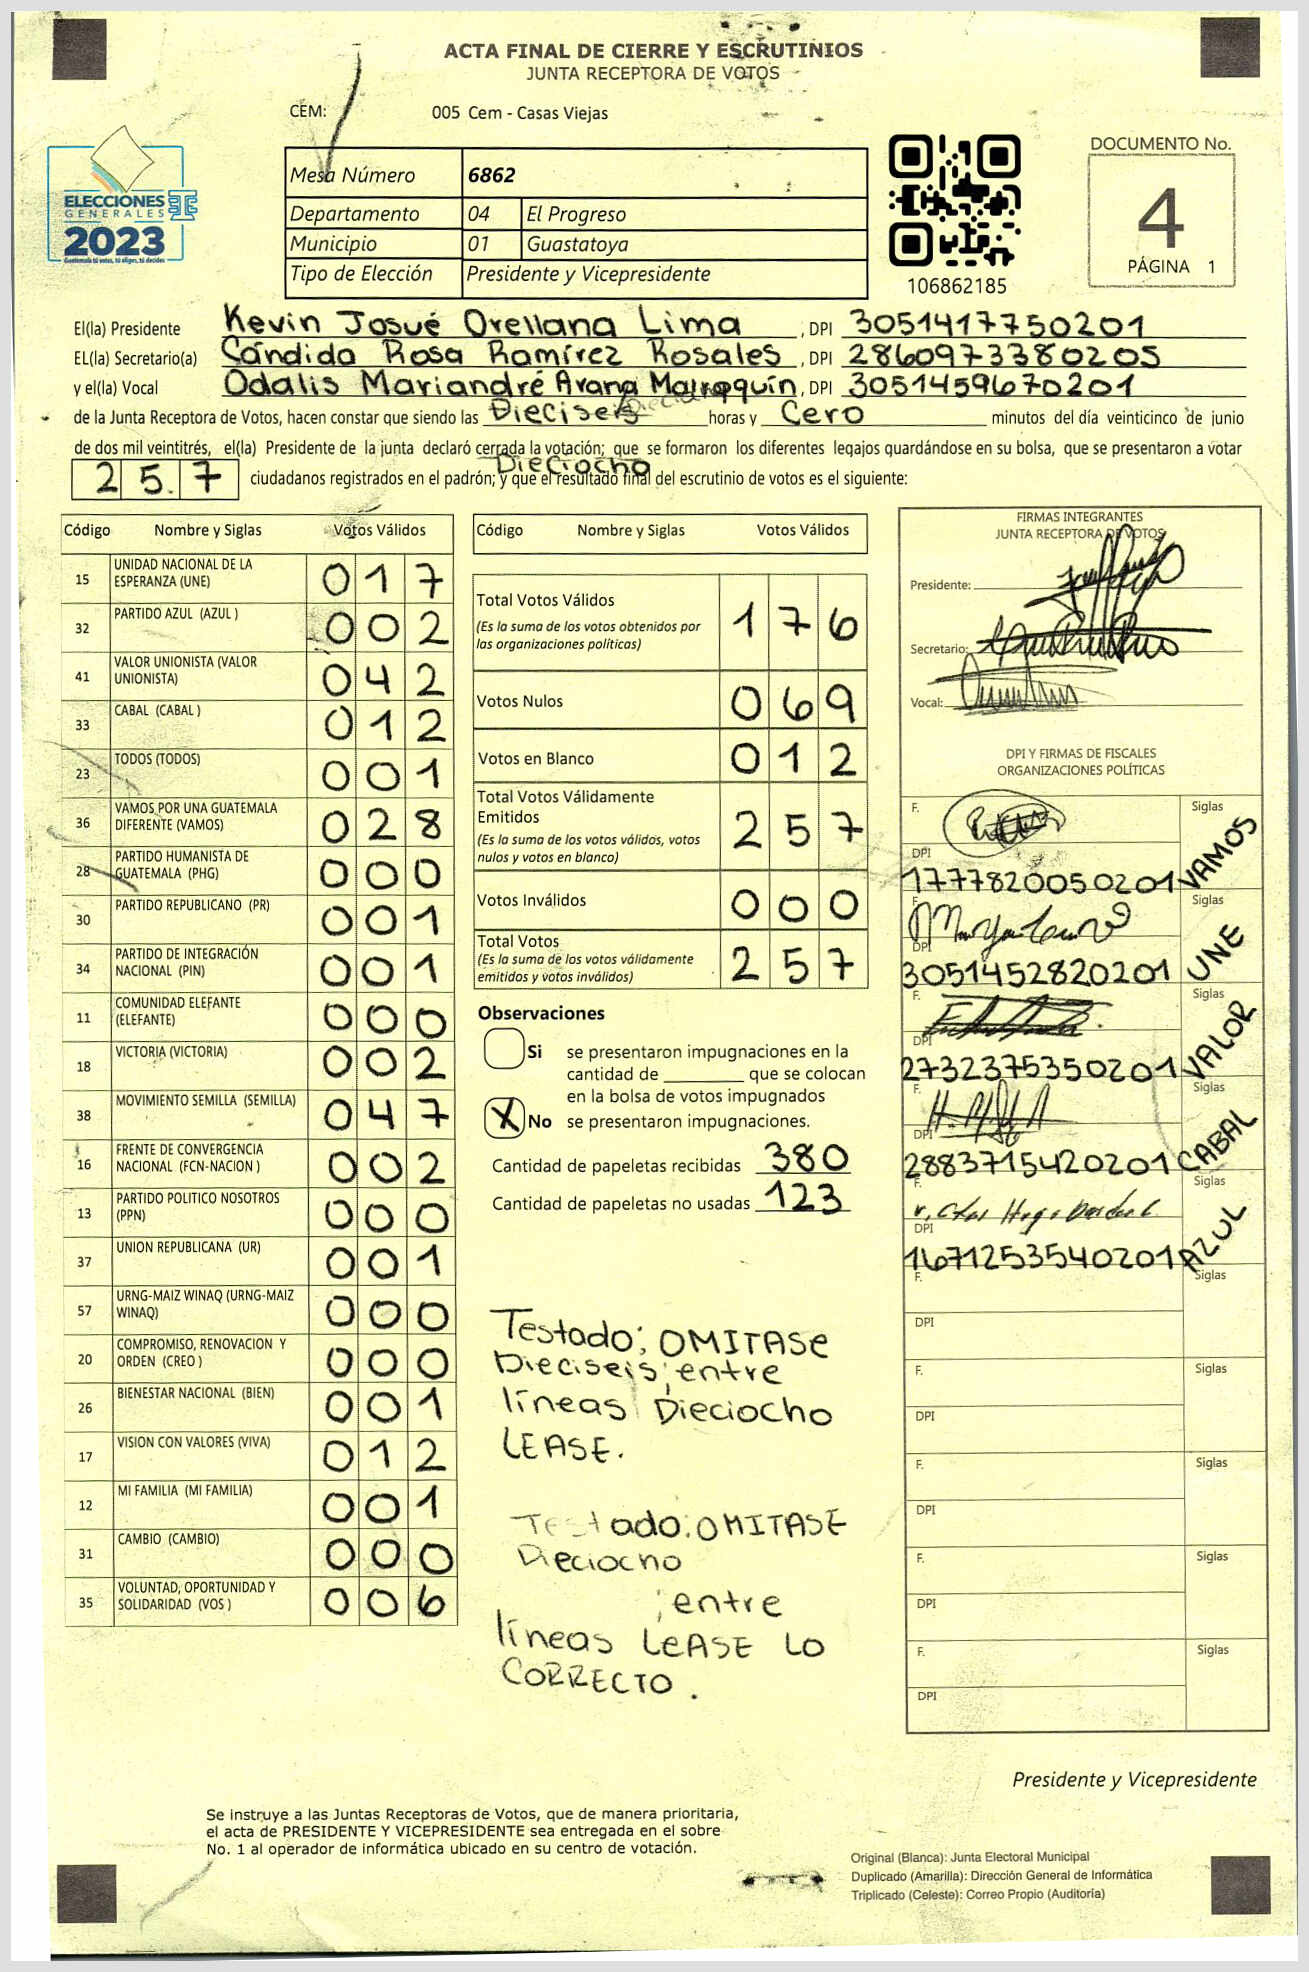 ACTA FINAL DE CIERRE Y ESCRUTINIOS
JUNTA RECEPTORA DE VOTOS
CEM: 005 Cem - Casas Viejas
ELECCIONES
GENERALES
2023
Guatemala tú votas, tú eliges, tú decides
Mesa Número 6862
Departamento 04 El Progreso
Municipio 01 Guastatoya
Tipo de Elección Presidente y Vicepresidente
106862185
DOCUMENTO No.
4
PÁGINA 1
El(la) Presidente Kevin Josué Orellana Lima , DPI 3051417750201
EL(la) Secretario(a) Cándida Rosa Ramírez Rosales , DPI 2860973380205
y el(la) Vocal Odalis Mariandré Arana Marroquín , DPI 3051459670201
de la Junta Receptora de Votos, hacen constar que siendo las Dieciseis Dieciocho horas y Cero minutos del día veinticinco de junio
de dos mil veintitrés, el(la) Presidente de la junta declaró cerrada la votación; que se formaron los diferentes legajos guardándose en su bolsa, que se presentaron a votar
Dieciocho
257 ciudadanos registrados en el padrón; y que el resultado final del escrutinio de votos es el siguiente:
Código Nombre y Siglas Votos Válidos
15 UNIDAD NACIONAL DE LA ESPERANZA (UNE) 017
32 PARTIDO AZUL (AZUL ) 002
41 VALOR UNIONISTA (VALOR UNIONISTA) 042
33 CABAL (CABAL ) 012
23 TODOS (TODOS) 001
36 VAMOS POR UNA GUATEMALA DIFERENTE (VAMOS) 028
28 PARTIDO HUMANISTA DE GUATEMALA (PHG) 000
30 PARTIDO REPUBLICANO (PR) 001
34 PARTIDO DE INTEGRACIÓN NACIONAL (PIN) 001
11 COMUNIDAD ELEFANTE (ELEFANTE) 000
18 VICTORIA (VICTORIA) 002
38 MOVIMIENTO SEMILLA (SEMILLA) 047
16 FRENTE DE CONVERGENCIA NACIONAL (FCN-NACION ) 002
13 PARTIDO POLITICO NOSOTROS (PPN) 000
37 UNION REPUBLICANA (UR) 001
57 URNG-MAIZ WINAQ (URNG-MAIZ WINAQ) 000
20 COMPROMISO, RENOVACION Y ORDEN (CREO ) 000
26 BIENESTAR NACIONAL (BIEN) 001
17 VISION CON VALORES (VIVA) 012
12 MI FAMILIA (MI FAMILIA) 001
31 CAMBIO (CAMBIO) 000
35 VOLUNTAD, OPORTUNIDAD Y SOLIDARIDAD (VOS ) 006
Código Nombre y Siglas Votos Válidos
Total Votos Válidos 176
(Es la suma de los votos obtenidos por
las organizaciones políticas)
Votos Nulos 069
Votos en Blanco 012
Total Votos Válidamente
Emitidos 257
(Es la suma de los votos válidos, votos
nulos y votos en blanco)
Votos Inválidos 000
Total Votos 257
(Es la suma de los votos válidamente
emitidos y votos inválidos)
Observaciones
Si se presentaron impugnaciones en la
cantidad de ________ que se colocan
en la bolsa de votos impugnados
X No se presentaron impugnaciones.
Cantidad de papeletas recibidas 380
Cantidad de papeletas no usadas 123
Testado; OMITASE
Dieciseis; entre
líneas Dieciocho
LEASE.
Testado: OMITASE
Dieciocho
; entre
líneas LEASE LO
CORRECTO.
FIRMAS INTEGRANTES
JUNTA RECEPTORA DE VOTOS
Presidente:
Secretario:
Vocal:
DPI Y FIRMAS DE FISCALES
ORGANIZACIONES POLÍTICAS
F. Siglas
DPI
1777820050201 VAMOS
F. Siglas
DPI
3051452820201 UNE
F. Siglas
DPI
2732375350201 VALOR
F. Siglas
DPI
2883715420201 CABAL
F. Siglas
DPI
1671253540201 AZUL
F. Siglas
DPI
F. Siglas
DPI
F. Siglas
DPI
F. Siglas
DPI
F. Siglas
DPI
Presidente y Vicepresidente
Se instruye a las Juntas Receptoras de Votos, que de manera prioritaria,
el acta de PRESIDENTE Y VICEPRESIDENTE sea entregada en el sobre
No. 1 al operador de informática ubicado en su centro de votación.
Original (Blanca): Junta Electoral Municipal
Duplicado (Amarilla): Dirección General de Informática
Triplicado (Celeste): Correo Propio (Auditoría)